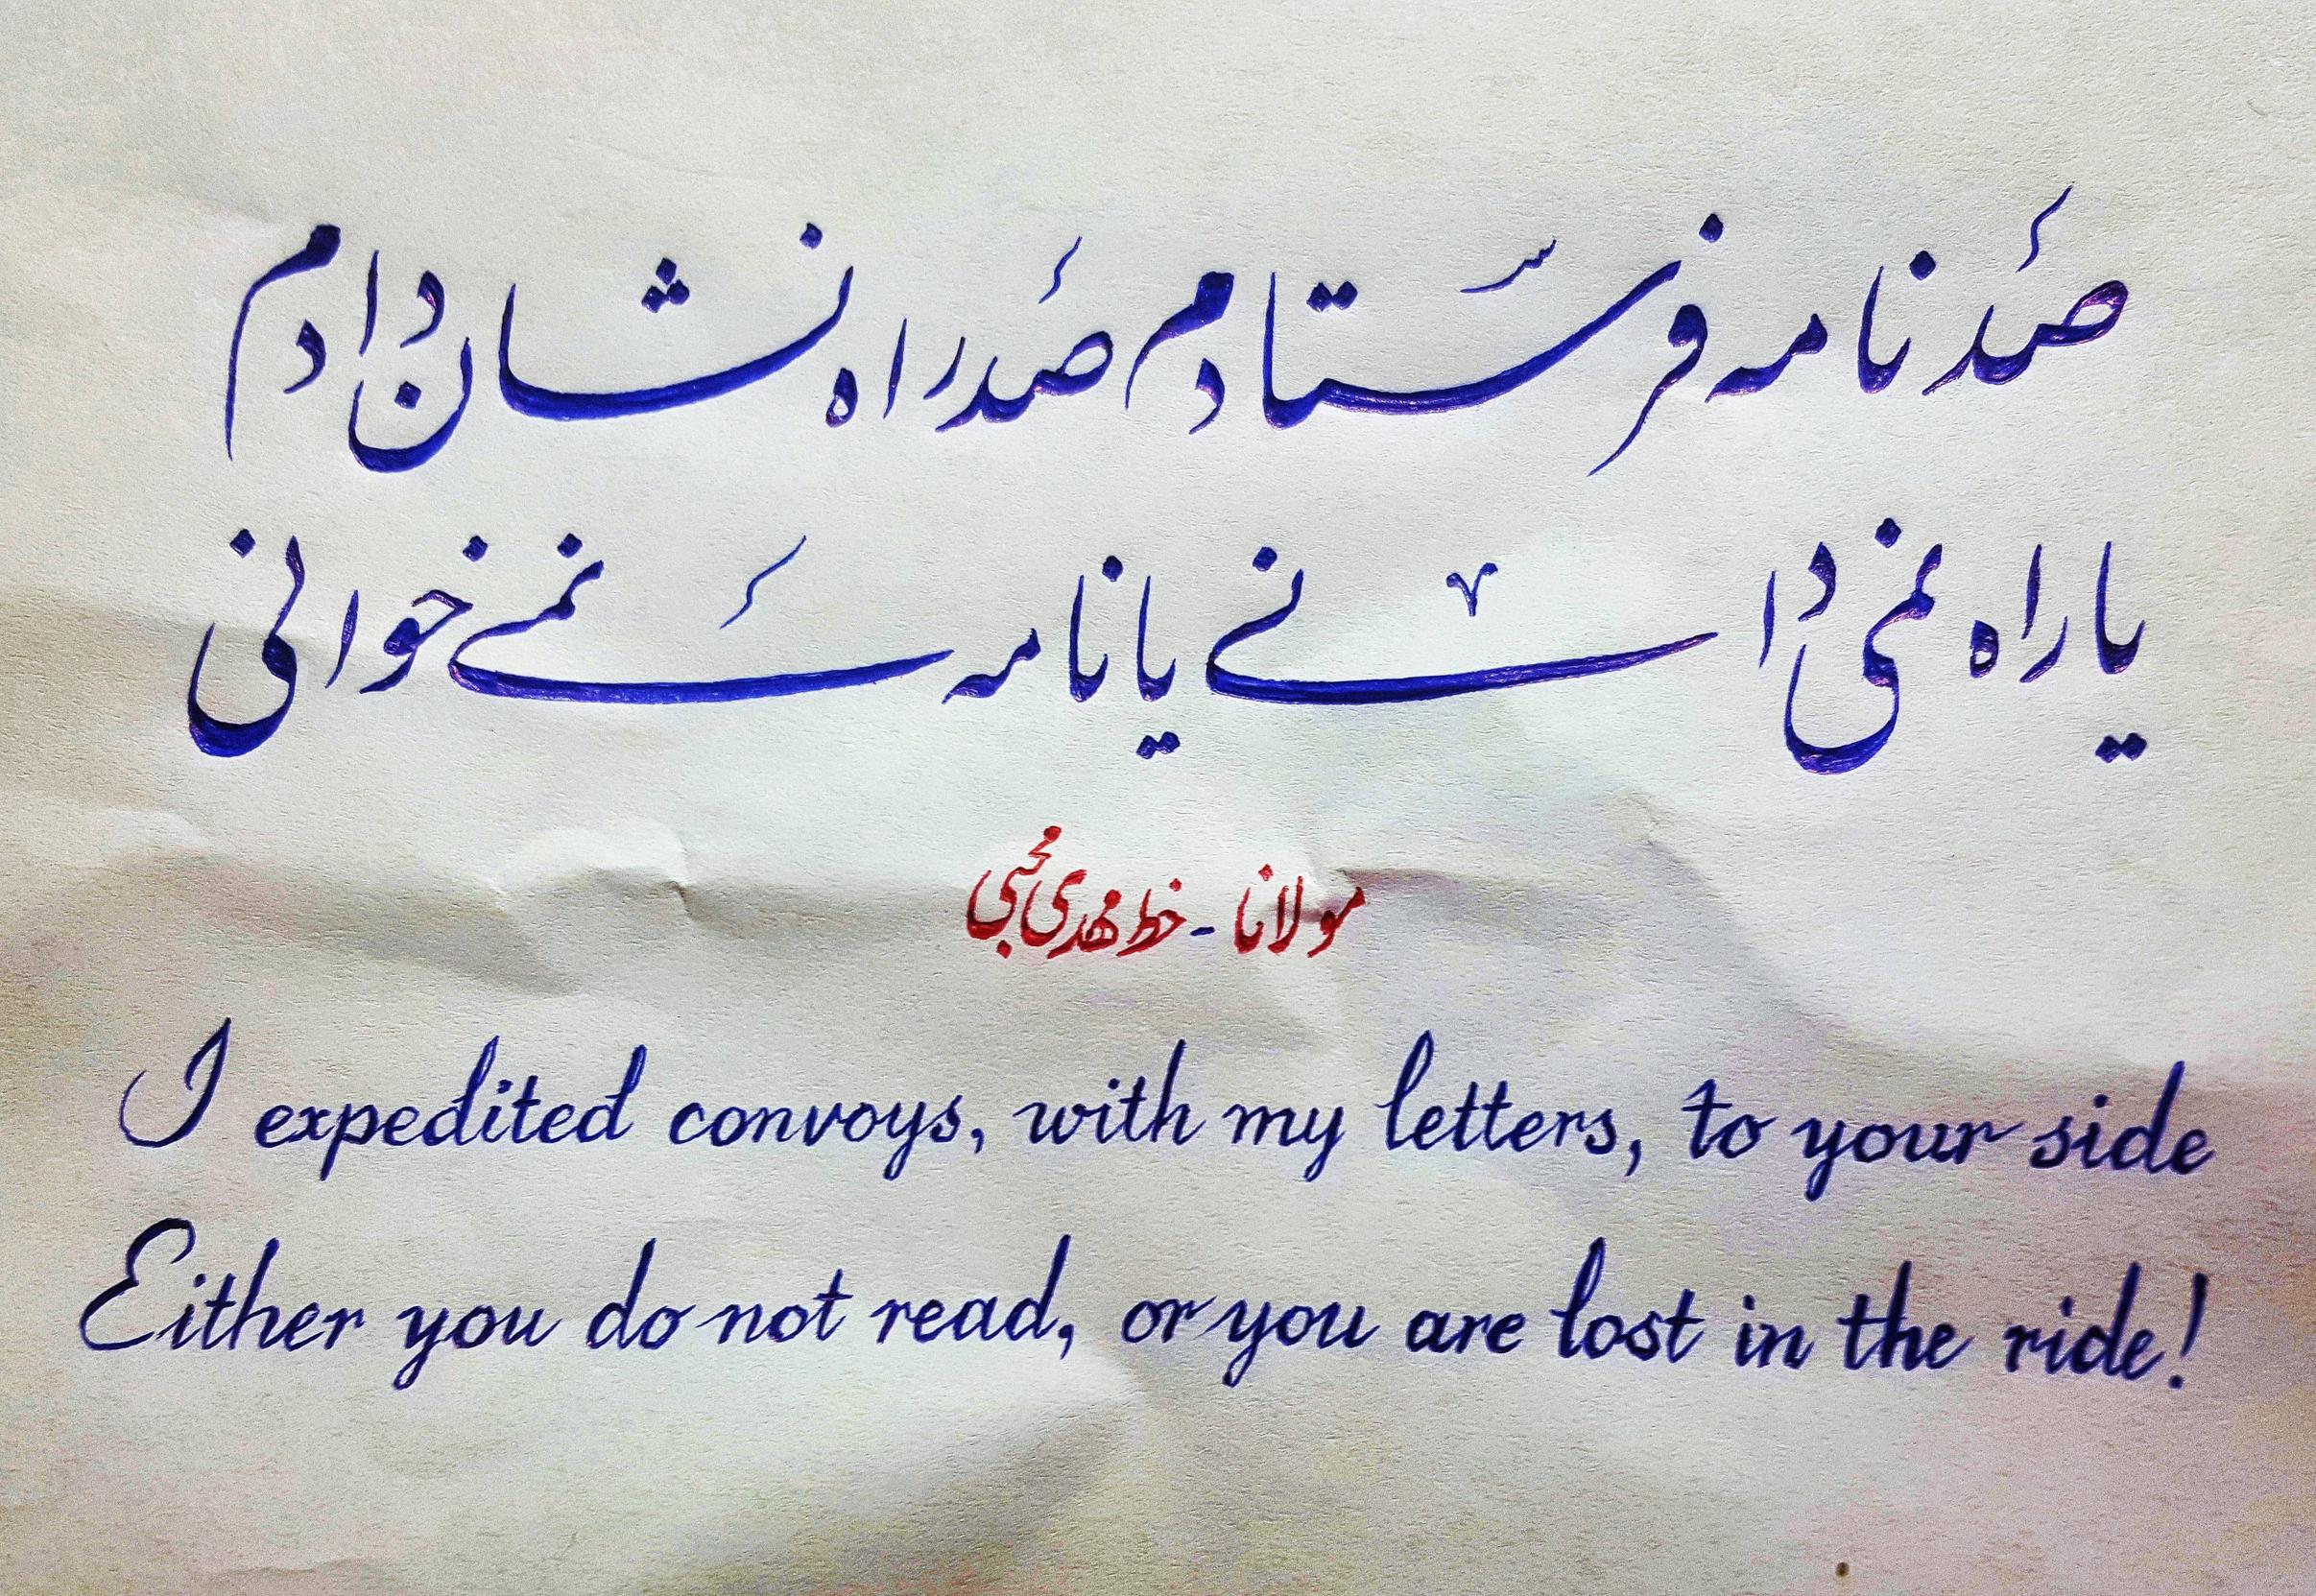 صد نامه فرستادم صد راه نشان دادم
یا راه نمی دانی یا نامه نمی خوانی
مولانا - خط مهدی محبی
I expedited convoys, with my letters, to your side
Either you do not read, or you are lost in the ride!